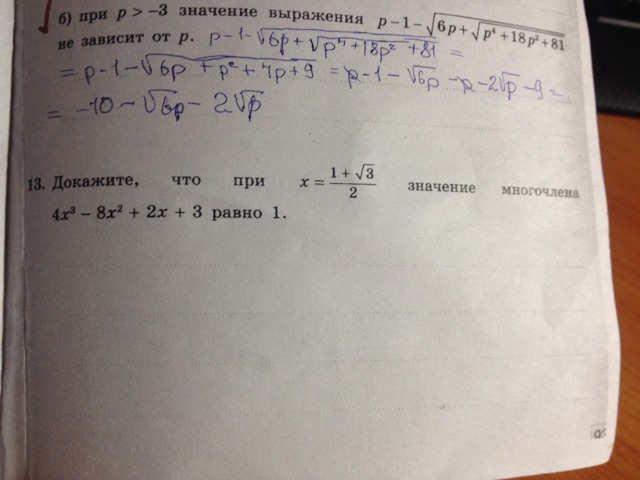 б) при p > −3 значение выражения p − 1 − √(6p + √(p⁴ + 18p² + 81))
не зависит от p. p - 1 - √(6p + √(p⁴ + 18p² + 81)) =
= p - 1 - √(6p + p² + 4p + 9) = p - 1 - √6p - p - 2√p - 9 =
= -10 - √6p - 2√p
13. Докажите, что при x = (1 + √3)/2 значение многочлена
4x³ − 8x² + 2x + 3 равно 1.